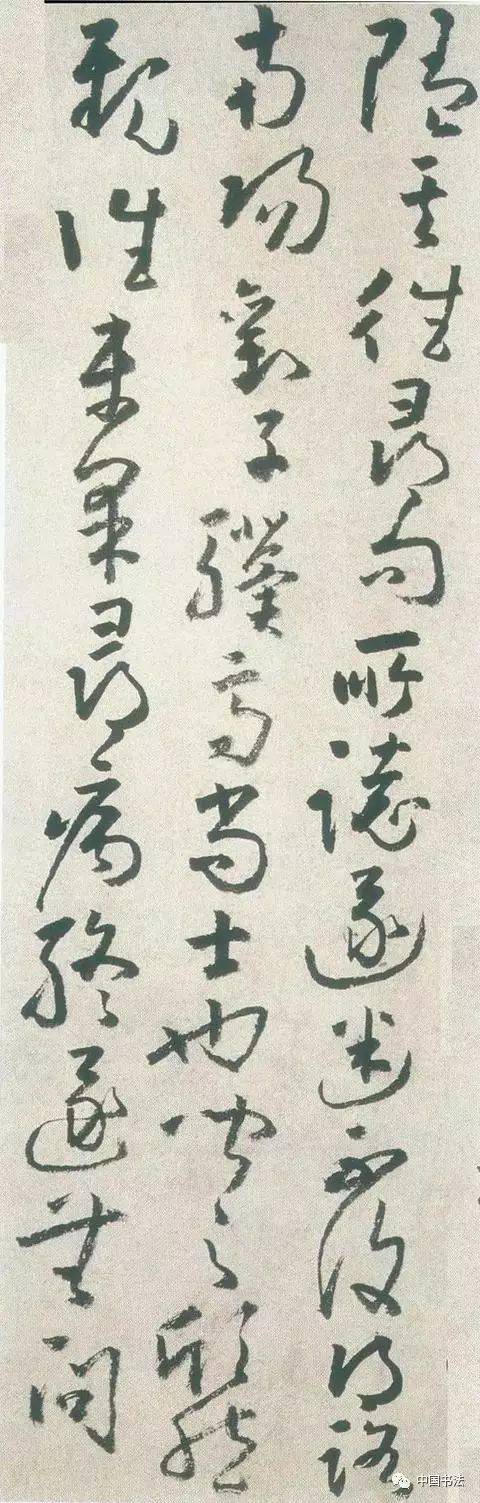 隨其往尋向所誌遂迷不復得路
南陽劉子驥高尚士也聞之欣然
親往未果尋病終遂無問
中国书法